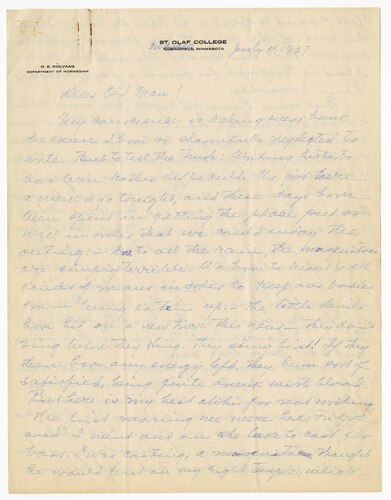 ST. OLAF COLLEGE
NORTHFIELD, MINNESOTA
O. E. RÖLVAAG
DEPARTMENT OF NORWEGIAN
July 4, 1927.
Dear Old Man!
My conscience is aching every hour
because I have so shamefully neglected to
write. But to tell the truth: Writing hitherto
has been rather difficult. We got here
a week ago tonight, and these days have
been spent in getting the place fixed so
well in order that we could enjoy the
outing. – Due to all the rain, the mosquitoes
are simply terrible. We have to resort to all
kinds of means in order to keep our bodies
from being eaten up. – The little devils
have hit on a new trick this year – they don't
sing before they sting, they sting first! If they
then have any energy left, they hum sort of
satisfied, being quite drunk with blood.
But here is my best alibi for not writing.
The first morning we were here,
and I went out on the lake to cast for
bass. I was casting; a mosquito thought
he would feast on my right temple, which